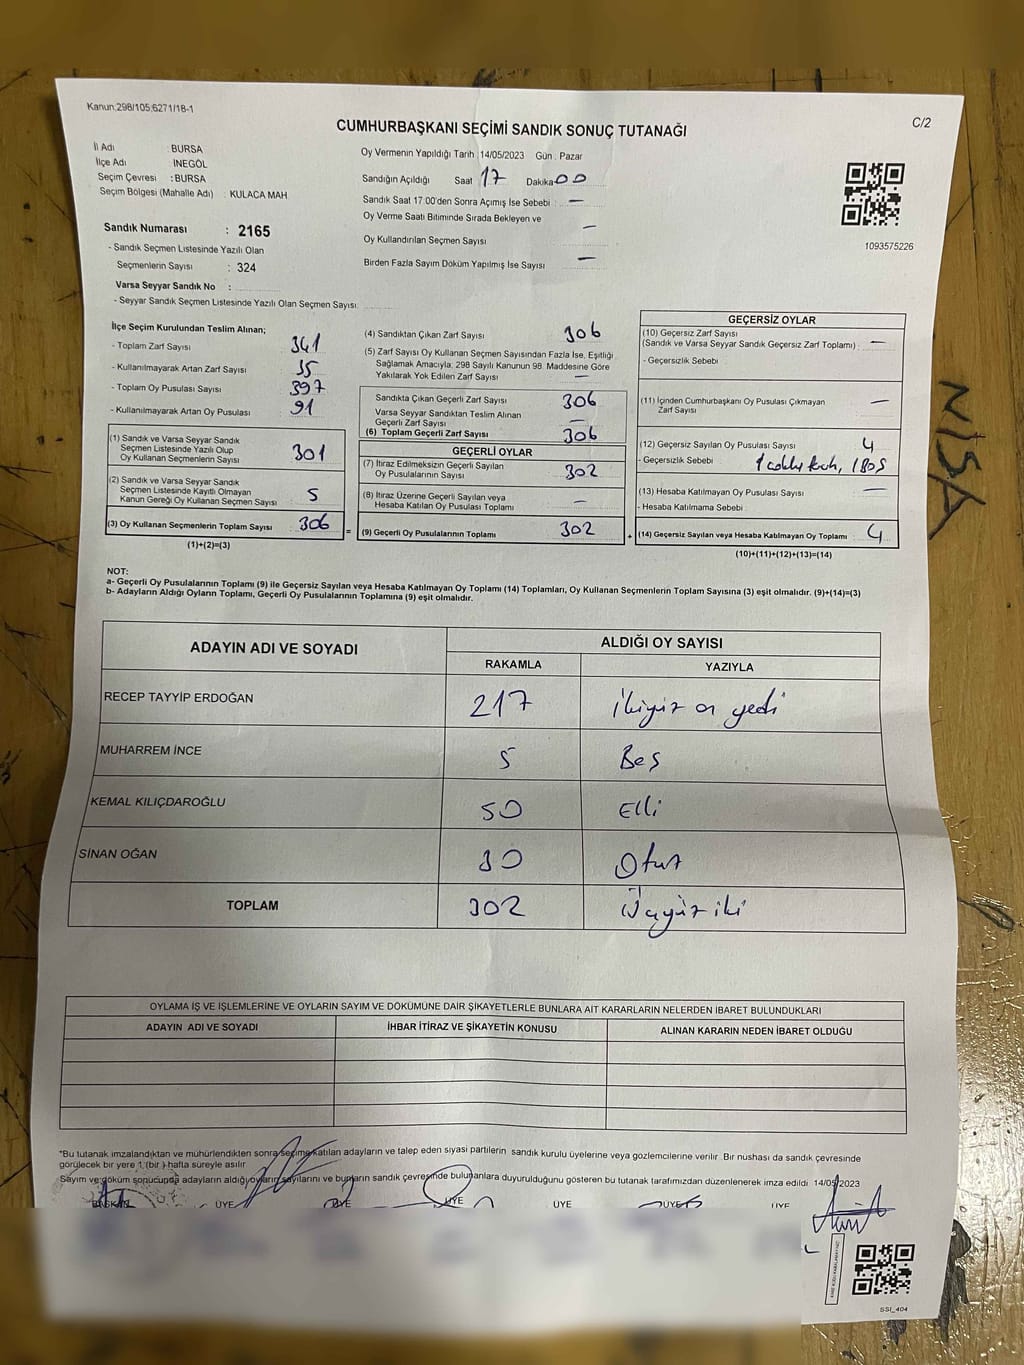 Kanun:298/105;6271/18-1
C/2
CUMHURBAŞKANI SEÇİMİ SANDIK SONUÇ TUTANAĞI
İl Adı : BURSA
İlçe Adı : İNEGÖL
Seçim Çevresi : BURSA
Seçim Bölgesi (Mahalle Adı) : KULACA MAH
Sandık Numarası : 2165
- Sandık Seçmen Listesinde Yazılı Olan
Seçmenlerin Sayısı : 324
Varsa Seyyar Sandık No :
- Seyyar Sandık Seçmen Listesinde Yazılı Olan Seçmen Sayısı:
Oy Vermenin Yapıldığı Tarih :14/05/2023 Gün : Pazar
Sandığın Açıldığı Saat 17 Dakika 00
Sandık Saat 17.00'den Sonra Açımış İse Sebebi : —
Oy Verme Saati Bitiminde Sırada Bekleyen ve
Oy Kullandırılan Seçmen Sayısı —
Birden Fazla Sayım Döküm Yapılmış İse Sayısı —
1093575226
İlçe Seçim Kurulundan Teslim Alınan;
- Toplam Zarf Sayısı 341
- Kullanılmayarak Artan Zarf Sayısı 35
- Toplam Oy Pusulası Sayısı 397
- Kullanılmayarak Artan Oy Pusulası 91
(1) Sandık ve Varsa Seyyar Sandık
Seçmen Listesinde Yazılı Olup
Oy Kullanan Seçmenlerin Sayısı 301
(2) Sandık ve Varsa Seyyar Sandık
Seçmen Listesinde Kayıtlı Olmayan
Kanun Gereği Oy Kullanan Seçmen Sayısı 5
(3) Oy Kullanan Seçmenlerin Toplam Sayısı 306 =
(1)+(2)=(3)
(4) Sandıktan Çıkan Zarf Sayısı 306
(5) Zarf Sayısı Oy Kullanan Seçmen Sayısından Fazla İse, Eşitliği
Sağlamak Amacıyla, 298 Sayılı Kanunun 98. Maddesine Göre
Yakılarak Yok Edilen Zarf Sayısı —
Sandıkta Çıkan Geçerli Zarf Sayısı 306
Varsa Seyyar Sandıktan Teslim Alınan
Geçerli Zarf Sayısı —
(6) Toplam Geçerli Zarf Sayısı 306
GEÇERLİ OYLAR
(7) İtiraz Edilmeksizin Geçerli Sayılan
Oy Pusulasının Sayısı 302
(8) İtiraz Üzerine Geçerli Sayılan veya
Hesaba Katılan Oy Pusulası Toplamı —
(9) Geçerli Oy Pusulalarının Toplamı 302 +
GEÇERSİZ OYLAR
(10) Geçersiz Zarf Sayısı
(Sandık ve Varsa Seyyar Sandık Geçersiz Zarf Toplamı) : —
- Geçersizlik Sebebi :
(11) İçinden Cumhurbaşkanı Oy Pusulası Çıkmayan
Zarf Sayısı —
(12) Geçersiz Sayılan Oy Pusulası Sayısı 4
- Geçersizlik Sebebi :
(13) Hesaba Katılmayan Oy Pusulası Sayısı —
- Hesaba Katılmama Sebebi :
(14) Geçersiz Sayılan veya Hesaba Katılmayan Oy Toplamı 4
(10)+(11)+(12)+(13)=(14)
NİSA
NOT:
a- Geçerli Oy Pusulalarının Toplamı (9) ile Geçersiz Sayılan veya Hesaba Katılmayan Oy Toplamı (14) Toplamları, Oy Kullanan Seçmenlerin Toplam Sayısına (3) eşit olmalıdır. (9)+(14)=(3)
b- Adayların Aldığı Oyların Toplamı, Geçerli Oy Pusulalarının Toplamına (9) eşit olmalıdır.
ADAYIN ADI VE SOYADI ALDIĞI OY SAYISI
RAKAMLA YAZIYLA
RECEP TAYYİP ERDOĞAN 217 İkiyüz on yedi
MUHARREM İNCE 5 Beş
KEMAL KILIÇDAROĞLU 50 Elli
SİNAN OĞAN 30 Otuz
TOPLAM 302 Üçyüz iki
OYLAMA İŞ VE İŞLEMLERİNE VE OYLARIN SAYIM VE DÖKÜMÜNE DAİR ŞİKAYETLERLE BUNLARA AİT KARARLARIN NELERDEN İBARET BULUNDUKLARI
ADAYIN ADI VE SOYADI İHBAR İTİRAZ VE ŞİKAYETİN KONUSU ALINAN KARARIN NEDEN İBARET OLDUĞU
*Bu tutanak imzalandıktan ve mühürlendikten sonra seçime katılan adayların ve talep eden siyasi partilerin sandık kurulu üyelerine veya gözlemcilerine verilir. Bir nushası da sandık çevresinde
görülecek bir yere 1 (bir ) hafta süreyle asılır
Sayım ve döküm sonucunda adayların aldığı oyların sayılarını ve bunların sandık çevresinde bulunanlara duyurulduğunu gösteren bu tutanak tarafımızdan düzenlenerek imza edildi 14/05/2023
BAŞKAN ÜYE ÜYE ÜYE ÜYE ÜYE ÜYE
SSİ_404